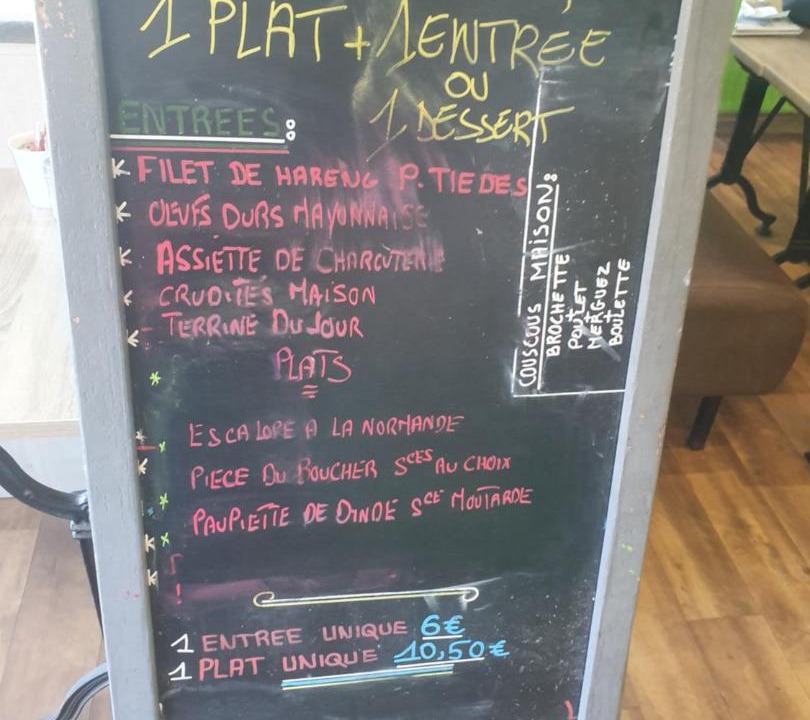 1 PLAT + 1 ENTRÉE
OU
1 DESSERT
ENTREES:
FILET DE HARENG P. TIEDES
OEUFS DURS MAYONNAISE
ASSIETTE DE CHARCUTERIE
CRUDITES MAISON
TERRINE DU JOUR
PLATS
ESCALOPE A LA NORMANDE
PIECE DU BOUCHER SCES AU CHOIX
PAUPIETTE DE DINDE SCE MOUTARDE
1 ENTREE UNIQUE 6€
1 PLAT UNIQUE 10,50€
COUSCOUS MAISON:
BROCHETTE
+
POULET
+
MERGUEZ
+
BOULETTE